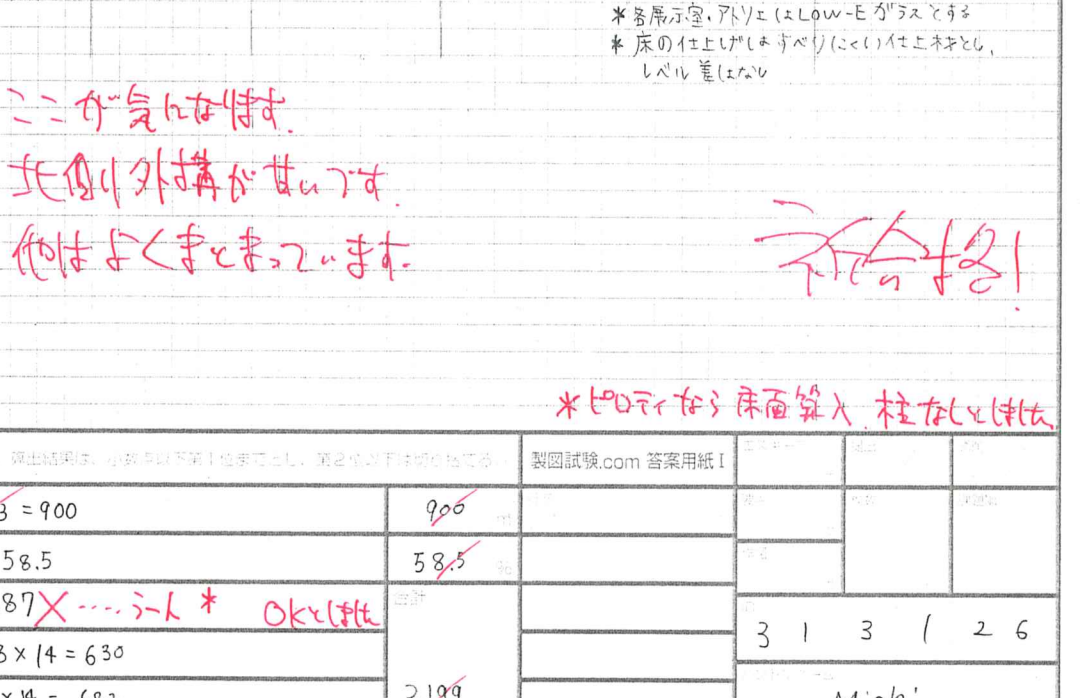 *各展示室・アトリエはLOW-Eガラスとする
*床の仕上げはすべりにくい仕上材とし、
レベル差はなし
ここが気になります.
北側外構が甘いです.
他はよくまとまっています.
合格!
*ピロティなら床面算入 柱なしとしました
算出結果は、小数点以下第1位までとし、第2位以下は切り捨てる
製図試験.com 答案用紙 I
3 = 900
900
58.5
58.5
87 × ....うーん * OKとしました
3 1 3 1 26
3 × 14 = 630
2199